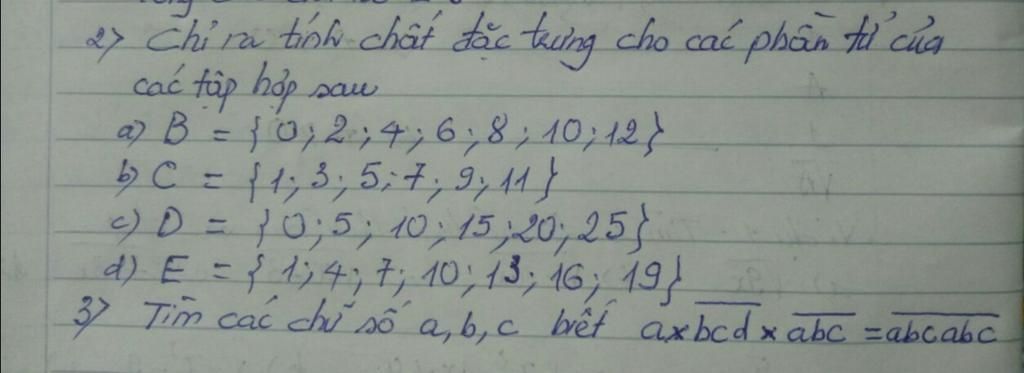 2> Chỉ ra tính chất đặc trưng cho các phần tử của
các tập hợp sau
a) B = {0; 2; 4; 6; 8; 10; 12}
b) C = {1; 3; 5; 7; 9; 11}
c) D = {0; 5; 10; 15; 20; 25}
d) E = {1; 4; 7; 10; 13; 16; 19}
3> Tìm các chữ số a, b, c biết a x b̅c̅d̅ x a̅b̅c̅ = a̅b̅c̅a̅b̅c̅